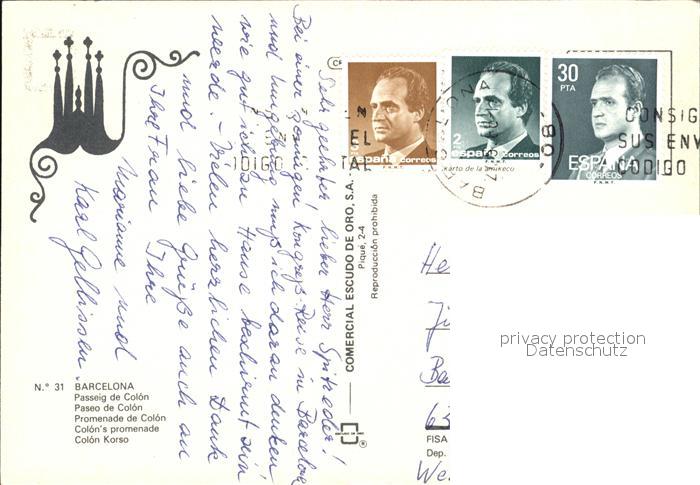 Sehr geehrter, lieber Herr Spitzeder!
Bei einer Kongreß-Reise in Barcelona
und Umgebung muß ich daran denken
wie gut ich in Hause bestimmt sein
werde. – Vielen herzlichen Dank
und liebe Grüße auch an
Ihre Frau
Ihre
Marianne und
Karl Gellissen
N.° 31 BARCELONA
Passeig de Colón
Paseo de Colón
Promenade de Colón
Colón's promenade
Colón Korso
COMERCIAL ESCUDO DE ORO, S.A.
Piqué, 2-4
Reproducción prohibida
españa correos
F.N.M.T.
2
españa correos
F.N.M.T.
karto de la amikeco
30
PTA
ESPAÑA
CORREOS
F.N.M.T.
BARCELONA
CONSIG
SUS ENV
CODIGO
EL
TAL
He
Ba
FISA
Dep.
We
privacy protection
Datenschutz